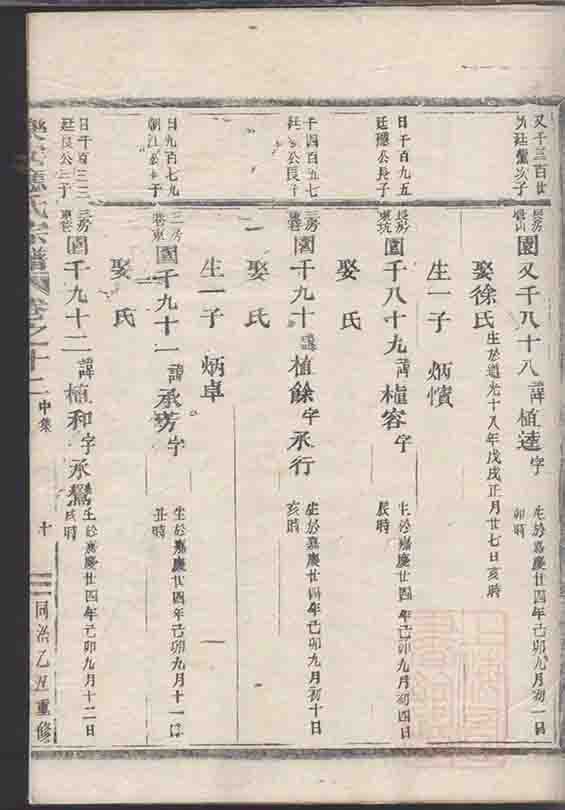 又千三百廿
次子
長房
園又千八十八 諱植達字 生於嘉慶廿四年己卯九月初一日
卯時
娶徐氏 生於道光十八年戊戌正月廿七日亥時
生一子 炳
日千百九五
廷穩公長子
長房
東坑
園千八十九 諱植容字 生於嘉慶廿四年己卯九月初四日
辰時
娶氏
千四百五七
公長子
三房
園千九十 諱植餘字承行 生於嘉慶廿四年己卯九月初十日
亥時
娶氏
生一子 炳卓
日九百七九
朝江公子
三房
巷東
園千九十一 諱承字 生於嘉慶廿四年己卯九月十一日
丑時
娶氏
日千百三三
廷良公三子
三房
園千九十二 諱植和字承 生於嘉慶廿四年己卯九月十二日
時
氏宗譜 卷之十二 中集 十 同治乙丑重修